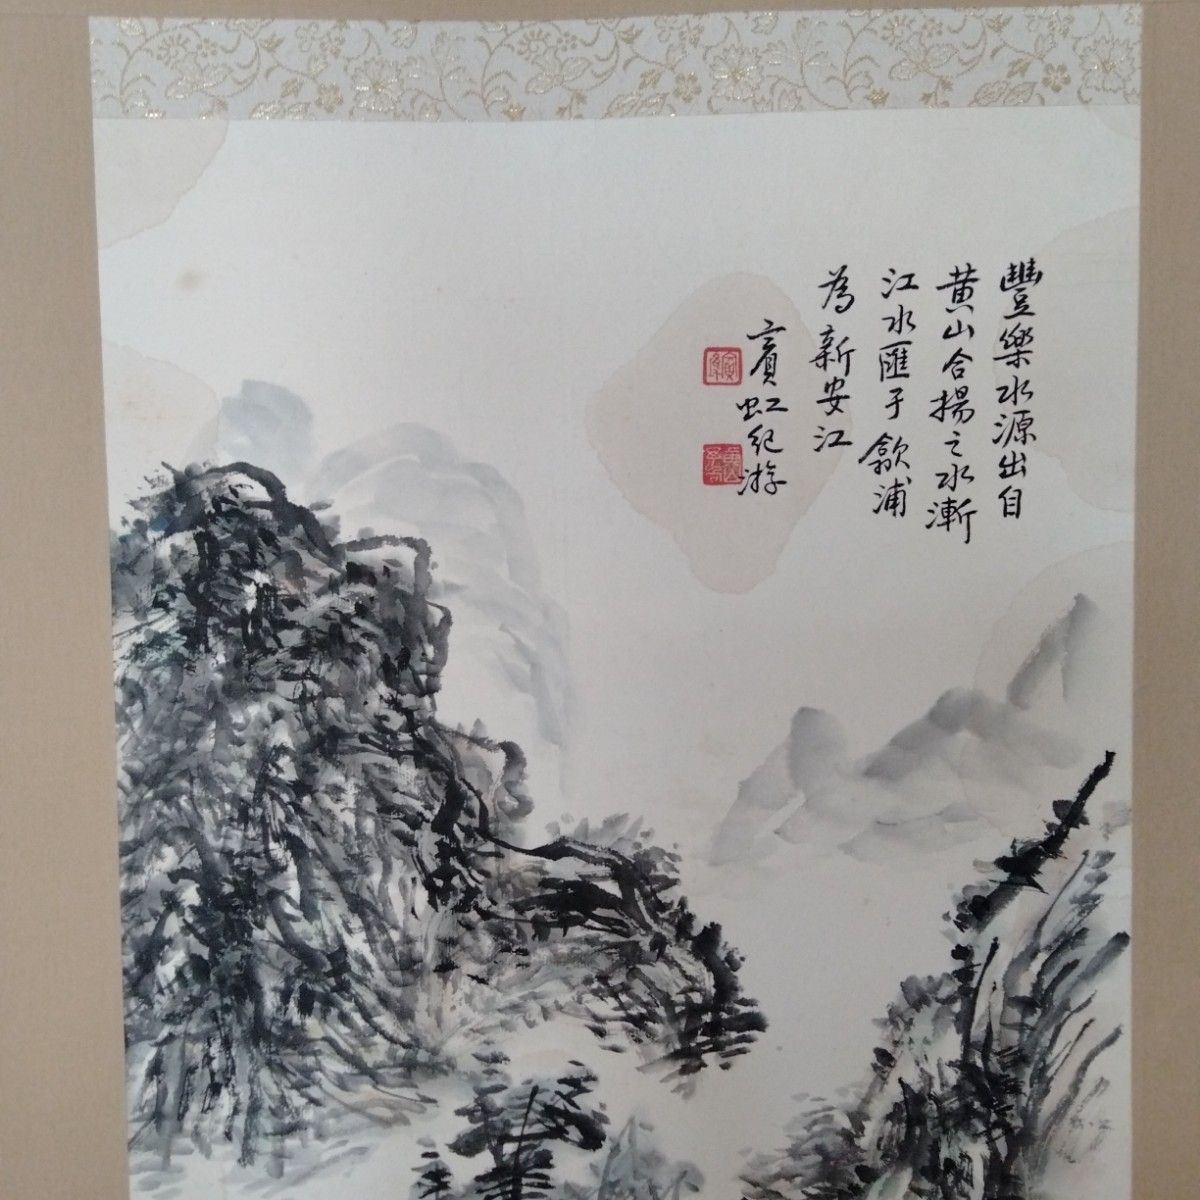 豐樂水源出自
黄山合揚之水漸
江水匯于歙浦
為新安江
賓虹紀游